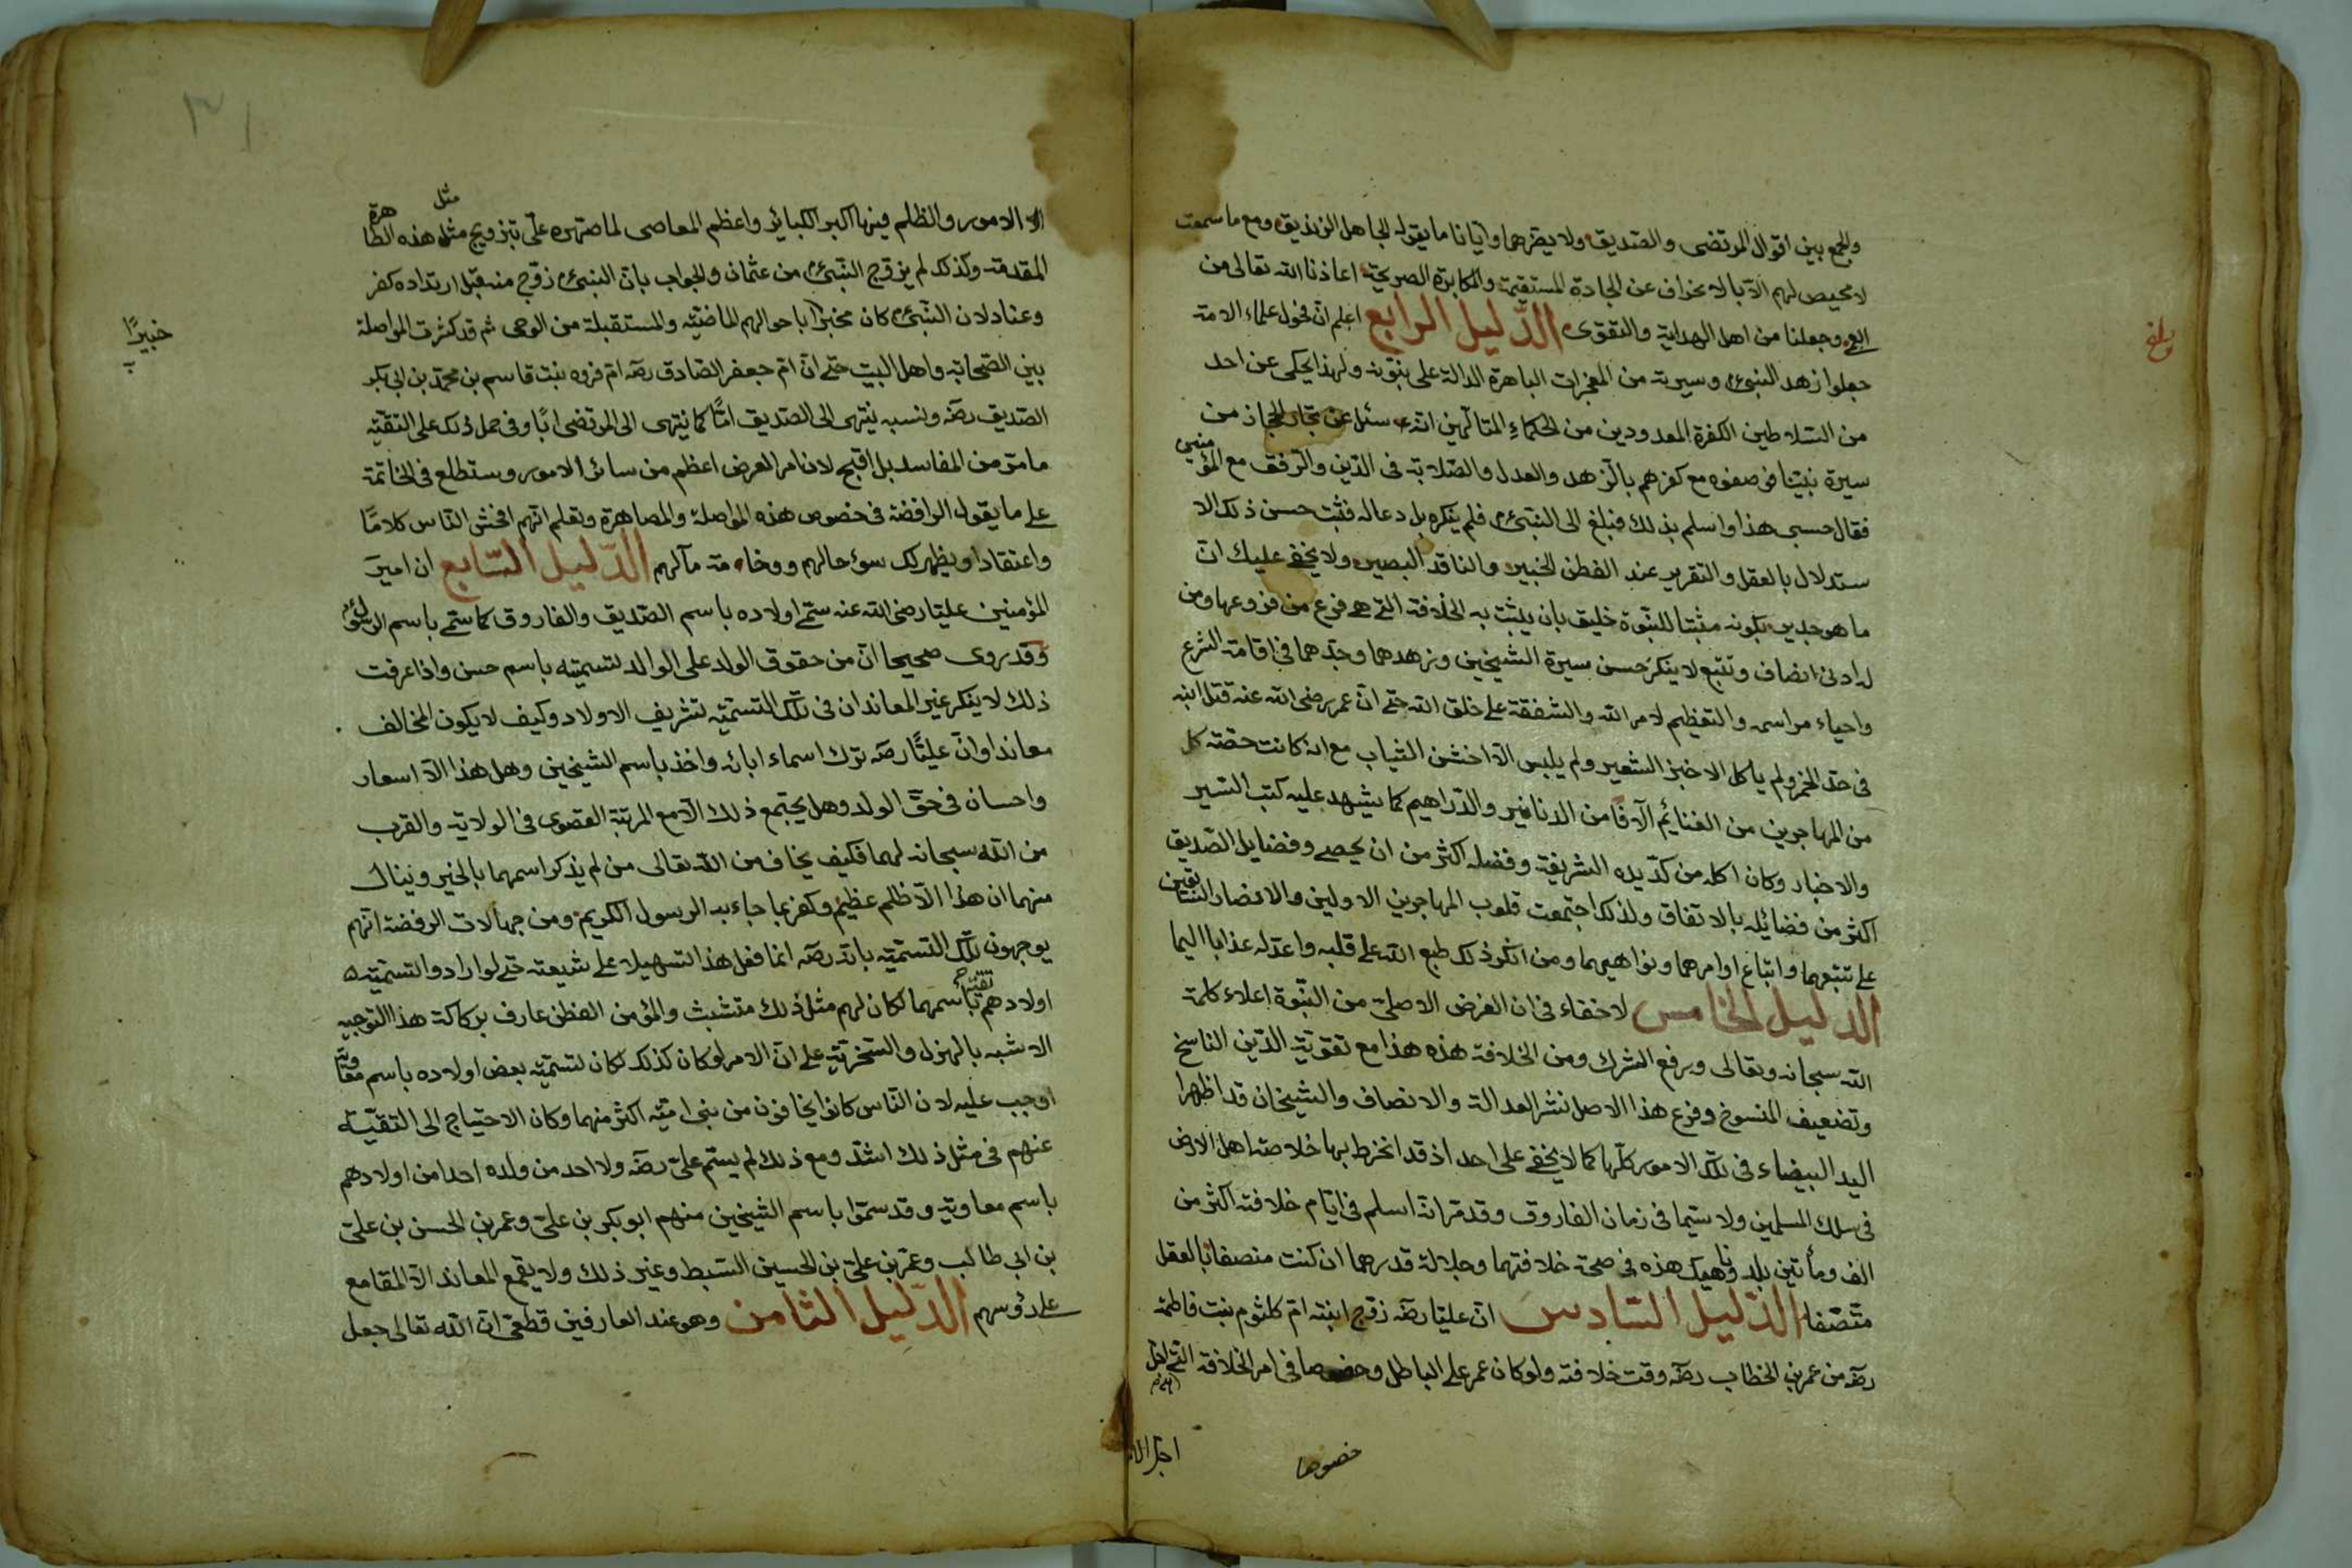 والجمع بين اقوال المرتضى والصديق ولا يضرهما وايانا ما يقوله الجاهل الزنديق ومع ما سمعت
لا محيص لهم الا بالانحراف عن الجادة المستقيمة والمكابرة الصريحة اعاذنا الله تعالى من
وجعلنا من اهل الهداية والتقوى الدليل الرابع اعلم ان فحول علماء الامة
جعلوا زهد النبي وسيرته من المعجزات الباهرة الدالة على نبوته ولهذا يحكى عن احد
من السلاطين الكفرة المعدودين من الحكماء المتألهين انه سئل عن تجار الحجاز من
سيرة نبينا فوصفوه مع كفرهم بالزهد والعدل والصلابة فى الدين والرفق مع المؤمنين
فقال حسبى هذا واسلم بذلك فبلغ الى النبي فلم ينكره بل دعا له فثبت حسن ذلك الا
ستدلال بالعقل والتقرير عند الفطن الخبير والناقد البصير ولا يخفى عليك ان
ما هو جدير بكونه مثبتا للنبوة خليق بان يثبت به الخلافة التى هى فرع من فروعها ومن
له ادنى انصاف وتتبع لا ينكر حسن سيرة الشيخين وزهدهما وجدهما فى اقامة الشرع
واحياء مراسمه والتعظيم لامر الله والشفقة على خلق الله حتى ان عمر رضى الله عنه قتل ابنه
فى حد الخمر ولم ياكل الا خبز الشعير ولم يلبس الا اخشن الثياب مع انه كانت حصة كل
من المهاجرين من الغنائم آلافا من الدنانير والدراهيم كما يشهد عليه كتب السير
والاخبار وكان اكله من كد يده الشريفة وفضله اكثر من ان يحصى وفضايل الصديق
اكثر من فضائله بالاتفاق ولذلك اجتمعت قلوب المهاجرين الاولين والانصار السابقين
على تتبعهما واتباع اوامرهما ونواهيهما ومن انكر ذلك طبع الله على قلبه واعد له عذابا اليما
الدليل الخامس لا خفاء فى ان الغرض الاصلى من النبوة اعلاء كلمة
الله سبحانه وتعالى ورفع الشرك ومن الخلافة هذه هذا مع تقوية الدين الناسخ
وتضعيف المنسوخ وفرع هذا الاصل نشر العدالة والانصاف والشيخان قد اظهرا
اليد البيضاء فى تلك الامور كلها كما لا يخفى على احد اذ قد انخرط بها خلاصة اهل الارض
فى سلك المسلمين ولا سيما فى زمان الفاروق وقد مر انه اسلم فى ايام خلافته اكثر من
الف ومأتين بلد وناهيك هذه فى صحة خلافتهما وجلالة قدرهما ان كنت منصفا بالعقل
متصفا الدليل السادس ان عليا رضه زوج ابنته ام كلثوم بنت فاطمة
رضه من عمر بن الخطاب رضه وقت خلافته ولو كان عمر على الباطل وخصوصا فى امر الخلافة التى
خصوصا
بلغ
الامور والظلم فيها اكبر الكبائر واعظم المعاصى لما صهره على بتزويج مثل هذه الطاهرة
مثل
المقدمة وكذلك لم يزوج النبي من عثمان والجواب بان النبي زوج منه قبل ارتداده كفر
وعناد لان النبي كان مخبرا باحوالهم الماضيه والمستقبلة من الوحى ثم قد كثرت المواصلة
خبيرًا
بين الصحابه واهل البيت حتى ان ام جعفر الصادق رضه ام فروه بنت قاسم بن محمد بن ابى بكر
الصديق رضه ونسبه ينتهى الى الصديق امًّا كما ينتهى الى المرتضى ابًا وفى حمل ذلك على التقيه
ما مر من المفاسد بل اقبح لان امر العرض اعظم من سائر الامور وستطلع فى الخاتمة
على ما يقول الرافضة فى خصوص هذه المواصلة والمصاهرة وتعلم انهم افحش الناس كلامًا
واعتقادا ويظهر لك سوء حالهم ووخامة مآلهم الدليل السابع ان امير
المؤمنين عليا رضى الله عنه سمى اولاده باسم الصديق والفاروق كما سمى باسم الرسول
وقد روى صحيحا ان من حقوق الولد على الوالد تسميته باسم حسن واذا عرفت
ذلك لا ينكر غير المعاند ان فى تلك التسميه تشريف الاولاد وكيف لا يكون المخالف
معاندا وان عليًّا رضه ترك اسماء ابائه واخذ باسم الشيخين وهل هذا الا اسعار
واحسان فى حق الولد وهل يجتمع ذلك الا مع المرتبة القصوى فى الولايه والقرب
من الله سبحانه لهما فكيف يخاف من الله تعالى من لم يذكر اسمهما بالخير وينال
منهما ان هذا الا ظلم عظيم وكفر بما جاء به الرسول الكريم ومن جهالات الرفضة انهم
يوجهون تلك التسميه بانه رضه انما فعل هذا تسهيلا على شيعته حتى لو ارادوا تسميه
اولادهم باسمهما لكان لهم مثل ذلك متشبث والمؤمن الفطن عارف بركاكة هذا التوجيه
الاشبه بالهزل والسخرية على ان الامر لو كان كذلك لكان تسميه بعض اولاده باسم معاويه
اوجب عليه لان الناس كانوا يخافون من بنى اميه اكثر منهما وكان الاحتياج الى التقيه
عنهم فى مثل ذلك اشد ومع ذلك لم يسم على رضه ولا احد من ولده احدا من اولادهم
باسم معاويه وقد سموا باسم الشيخين منهم ابو بكر بن على وعمر بن الحسن بن على
بن ابى طالب وعمر بن على بن الحسين السبط وغير ذلك ولا يقمع المعاند الا المقامع
على رؤسهم الدليل الثامن وهو عند العارفين قطعى ان الله تعالى جعل